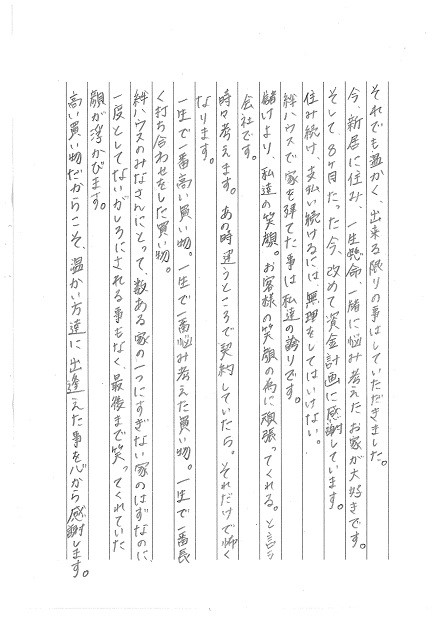 それでも温かく、出来る限りの事はしていただきました。
今、新居に住み、一生懸命、一緒に悩み考えたお家が大好きです。
そして8ヶ月たった今、改めて資金計画に感謝しています。
住み続け、支払い続けるには、無理をしてはいけない。
絆ハウスで家を建てた事は私達の誇りです。
儲けより、私達の笑顔。お客様の笑顔の為に頑張ってくれる。と言う
会社です。
時々考えます。あの時違うところで契約していたら。それだけで怖く
なります。
一生で一番高い買い物。一生で一番悩み考えた買い物。一生で一番長
く打ち合わせをした買い物。
絆ハウスのみなさんにとって、数ある家の一つにすぎない家のはずなのに
一度としてないがしろにされる事もなく、最後まで笑ってくれていた
顔が浮かびます。
高い買い物だからこそ、温かい方達に出逢えた事を心から感謝します。